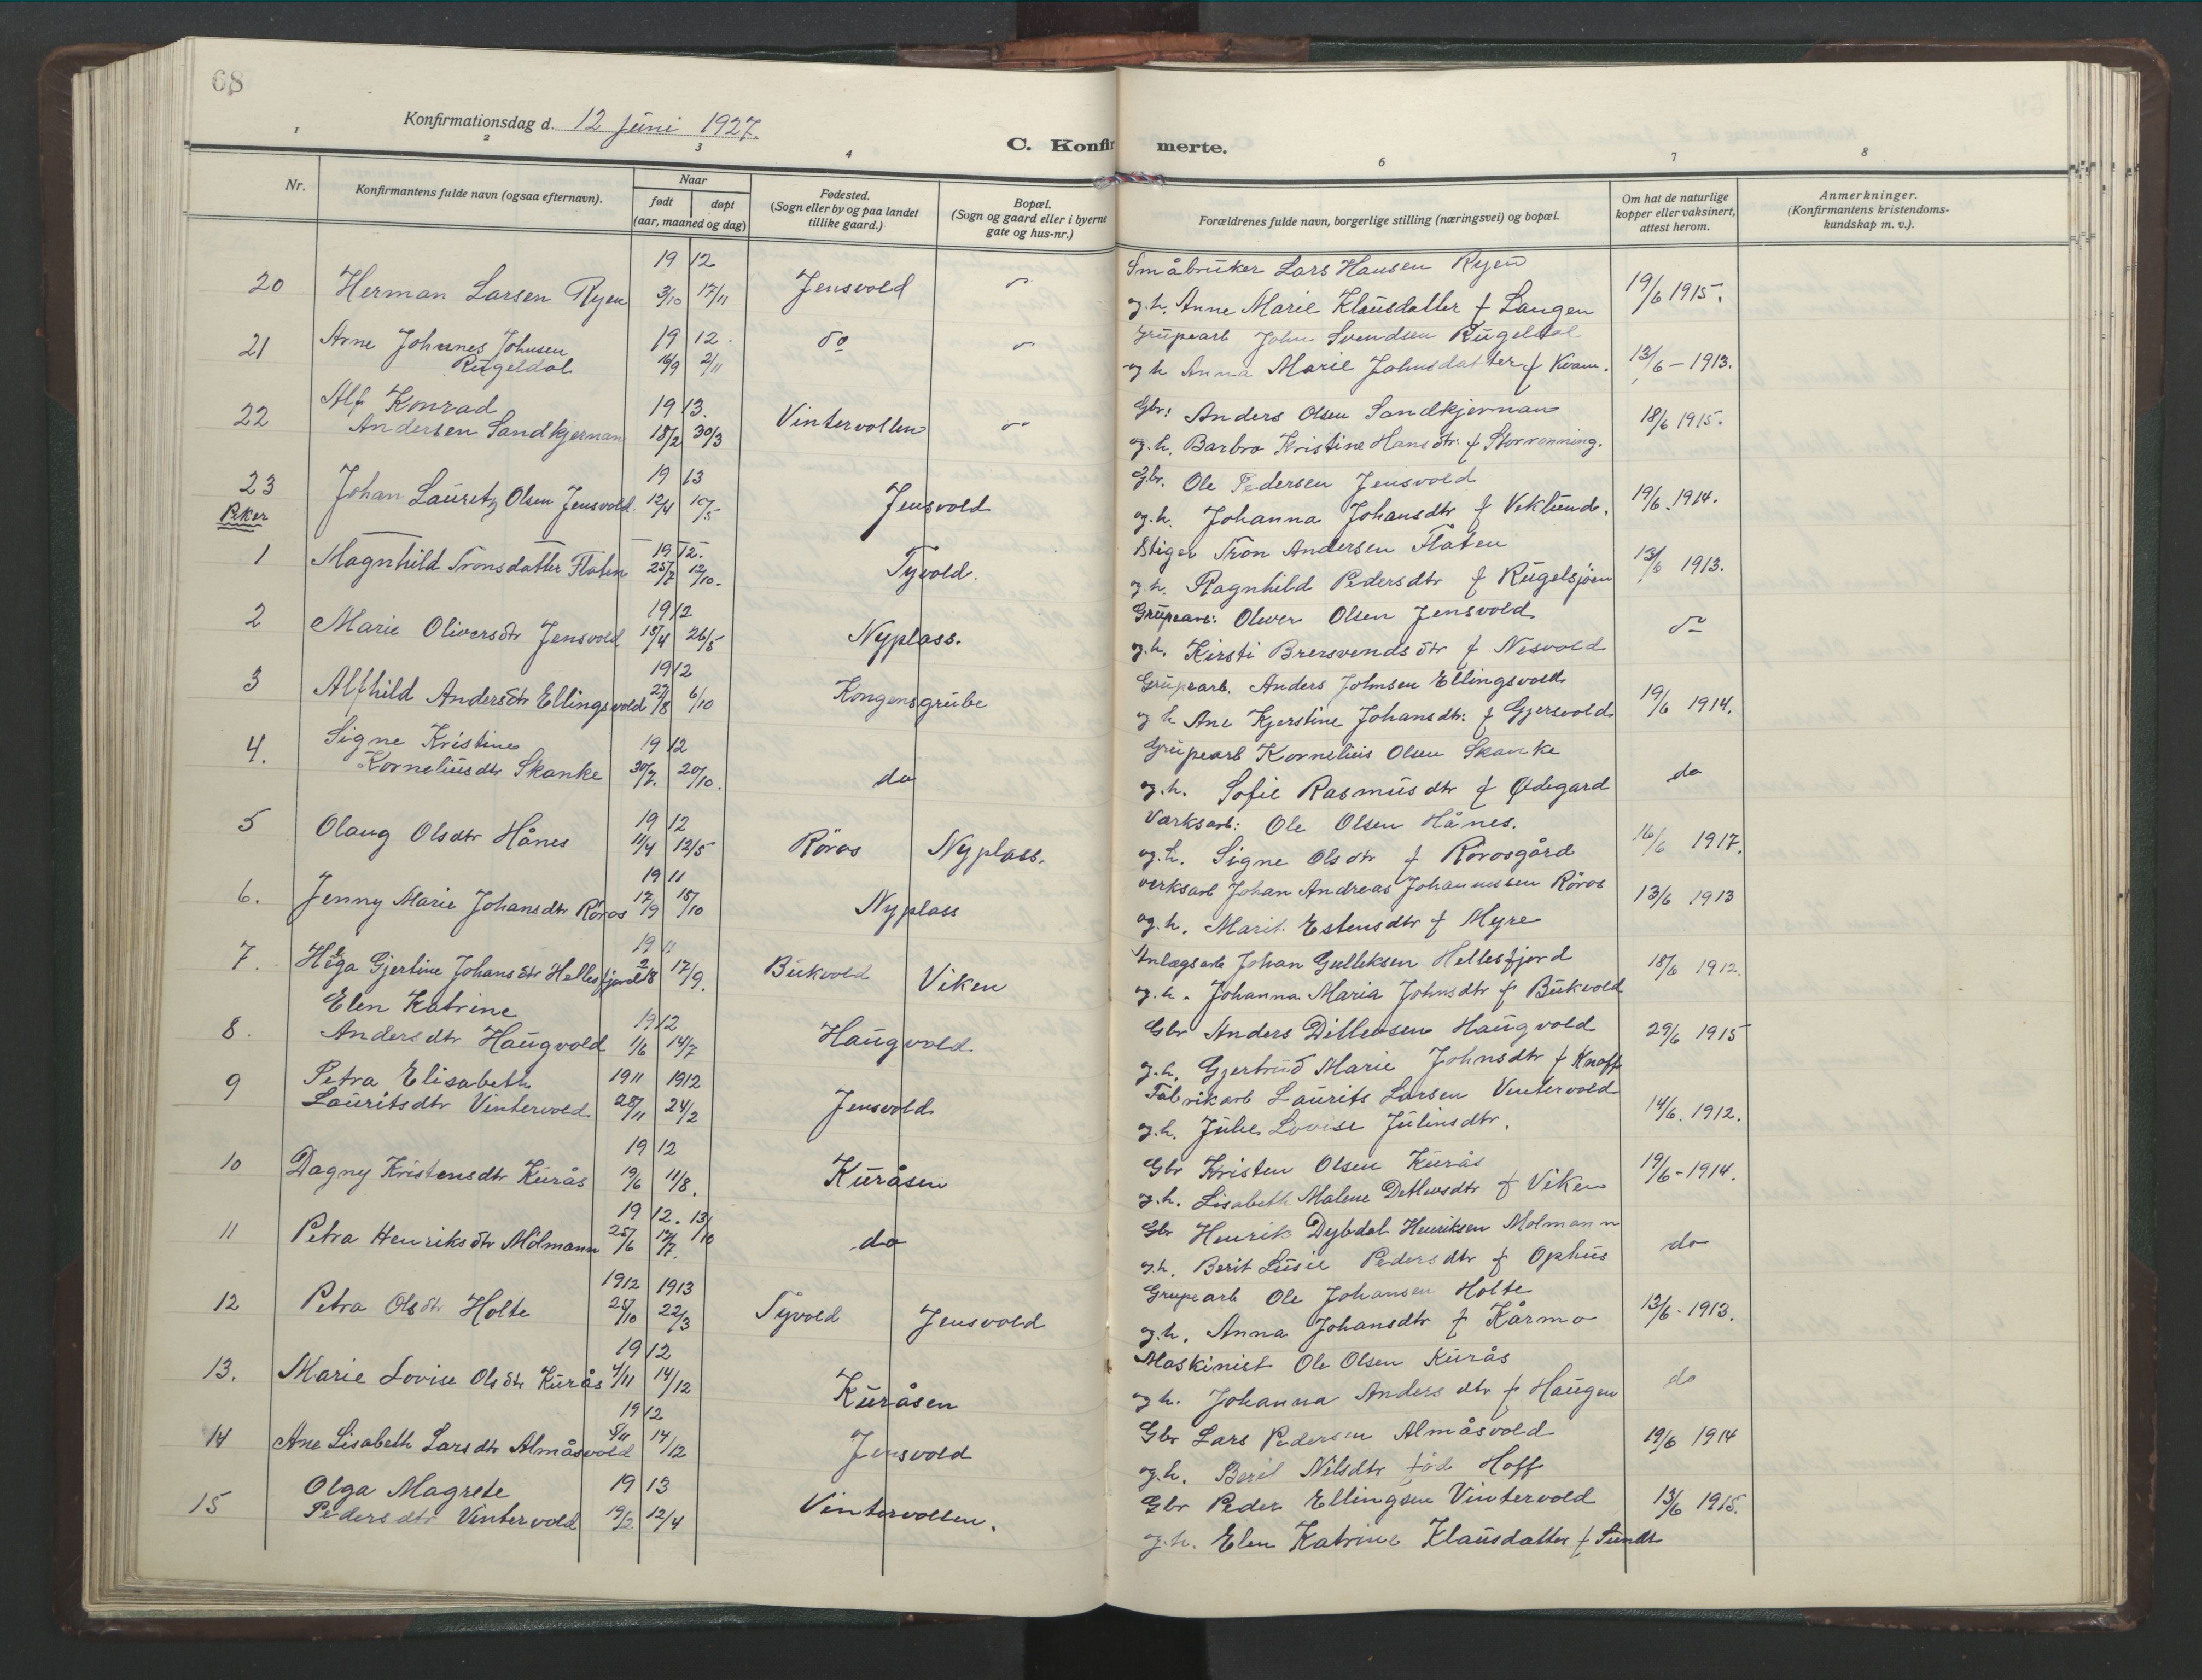 68
Konfirmationsdag d. 12 Juni 1927.
C. Konfirmerte.
1 2 3 4 6 7 8
Nr.
Konfirmantens fulde navn (ogsaa efternavn).
Naar
født
døpt
(aar, maaned og dag)
Fødested.
(Sogn eller by og paa landet
tillike gaard.)
Bopæl.
(Sogn og gaard eller i byerne
gate og hus-nr.)
Forældrenes fulde navn, borgerlige stilling (næringsvei) og bopæl.
Om hat de naturlige
kopper eller vaksinert,
attest herom.
Anmerkninger.
(Konfirmantens kristendoms-
kundskap m. v.).
19 12 Småbruker Lars Hansen Ryen
20 Herman Larsen Ryen 3/10 17/11 Jensvold 19/6 1915.
og h. Anne Marie Klausdatter f Langen
Arne Johannes Johnsen 19 12. do Grupearb John Svendsen Rugeldal
21 Rugeldal 16/9 2/11 og h Anna Marie Johnsdatter f Kvam. 13/6 - 1913.
Alf Konrad 19 13. Gbr: Anders Olsen Sandkjernan
22 Andersen Sandkjernan 18/2 30/3 Vintervollen og. h. Barbro Kristine Hansdtr: f Storrønning. 18/6 1915.
19 13 Gbr. Ole Pedersen Jensvold
23 Johan Lauretz Olsen Jensvold. 12/4 15/5 Jensvold og. h. Johanna Johansdtr f Veklund. 19/6 1914.
Piker
19 12. Stiger Tron Andersen Flaten
1 Magnhild Tronsdatter Flaten 25/7 12/10. Tyvold. og. h. Ragnhild Pedersdtr f Rugelsjøen 13/6 1913.
1912 Grupearb: Oliver Olsen Jensvold
2 Marie Oliversdtr Jensvold 18/4 26/5 Nyplass. og. h. Kirsti Brersvendsdtr f Nesvold do
1912 Grupearb. Anders Johnsen Ellingsvold
3 Alfhild Andersdtr Ellingsvold 27/8 6/10 Kongensgrube og h Ane Kjerstine Johansdtr: f Gjersvold 19/6 1914.
Signe Kristine 19 12 Grupearb Kornelius Olsen Skanke
4. Korneliusdtr Skanke 30/7. 20/10. do og. h. Sofie Rasmusdtr f Ødegard do
19 12 Værksarb: Ole Olsen Hånes.
5 Olaug Olsdtr Hånes 11/4 12/5 Røros Nyplass. og. h. Signe Olsdtr f Rørosgård 16/6 1917.
19 11 Verksarb Johan Andreas Johannessen Røros
6. Jenny Marie Johansdtr Røros 17/9 15/10 Nyplass og. h. Marit Estensdtr f Myre 13/6 1913
19 11 Anlægsarb Johan Gulleksen Hellesfjord
7. Helga Gjertine Johansdtr Hellesfjord 2/8 17/9. Bukvold Viken og. h. Johanna Maria Johnsdtr f Bukvold 18/6 1912.
Elen Katrine 1912 Gbr Anders Ditlevsen Haugvold
8. Andersdtr Haugvold 1/6 14/7 Haugvold og. h. Gjertrud Marie Johnsdtr f Knoff 29/6 1915
Petra Elisabeth 1911 1912 Fabrikarb Laurits Larsen Vintervold
9 Lauritsdtr Vintervold 28/11 24/2 Jensvold og. h. Julie Lovise Juliusdtr. 14/6. 1912.
19 12 Gbr Kristen Olsen Kurås
10 Dagny Kristensdtr Kurås 19/6 11/8. Kuråsen og. h. Lisabeth Malene Detlevsdtr f Viken 19/6 - 1914.
19 12. 13/10 Gbr Henrik Dybdal Henriksen Molmann
11 Petra Henriksdtr Molmann 25/6 do og. h. Berit Lusie Pedersdtr f Ophus do
1912 1913 Grupearb Ole Johansen Holte
12 Petra Olsdtr Holte 25/10 22/3 Tyvold Jensvold og. h. Anna Johansdtr f Kårmo 13/6 - 1913.
1912 Maskinist Ole Olsen Kurås
13. Marie Lovise Olsdtr Kurås 4/11 14/12 Kuråsen og h. Johanna Andersdtr f Haugen do
19 12 Gbr Lars Pedersen Almåsvold
14 Ane Lisabeth Larsdtr Almåsvold 5/11 14/12 Jensvold og. h. Beril Nilsdtr fød Hoff 19/6 1914
Olga Magrete 19 13 Gbr Peder Ellingsen Vintervold
15 Pedersdtr Vintervold 19/2 12/4 Vintervollen. og. h. Elen Katrine Klausdatter f Sundt 13/6 1915.